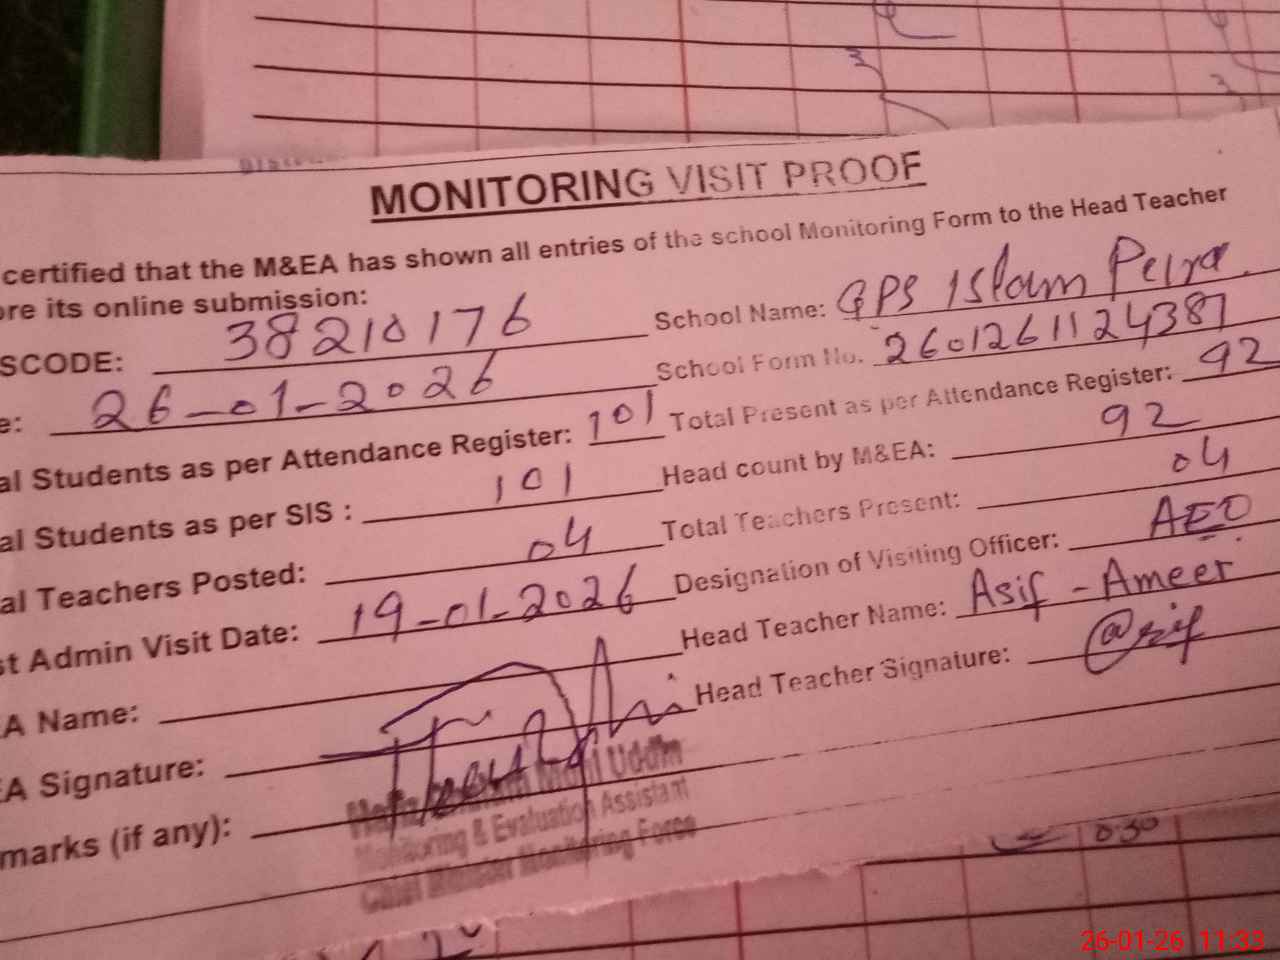 MONITORING VISIT PROOF
certified that the M&EA has shown all entries of the school Monitoring Form to the Head Teacher
ore its online submission:
SCODE: 38210176 School Name: GPS Islam Peira
e: 26-01-2026 School Form No. 2601261124387
al Students as per Attendance Register: 101 Total Present as per Attendance Register: 92
al Students as per SIS : 101 Head count by M&EA: 92
al Teachers Posted: 04 Total Teachers Present: 04
st Admin Visit Date: 19-01-2026 Designation of Visiting Officer: AEO
A Name: Head Teacher Name: Asif - Ameer
EA Signature: Head Teacher Signature: @sif
marks (if any):
Uddin
Monitoring & Evaluation Assistant
Chief Minister Monitoring Force
030
26-01-26 11:33